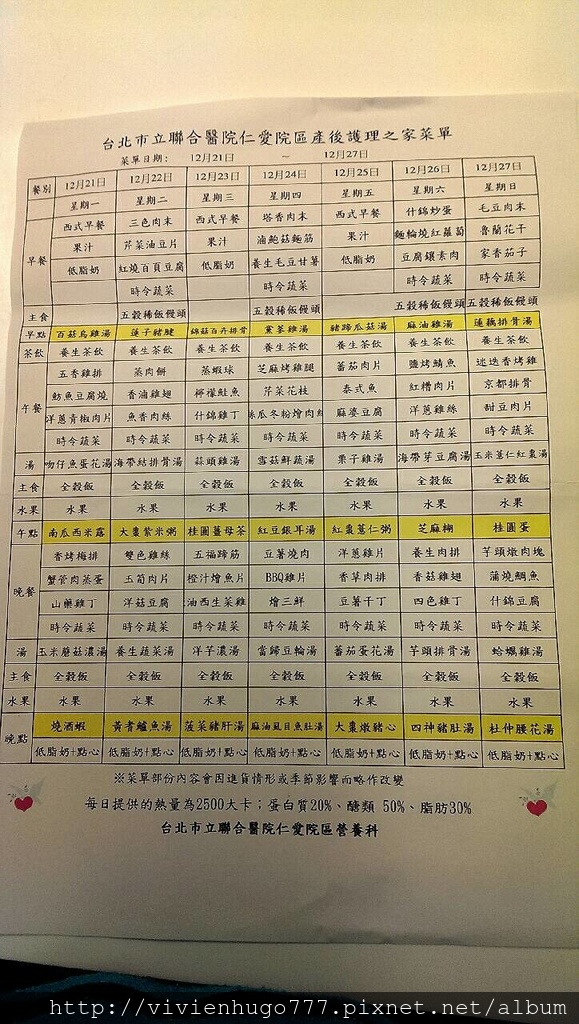 台北市立聯合醫院仁愛院區產後護理之家菜單
菜單日期: 12月21日 ~ 12月27日
餐別 12月21日 12月22日 12月23日 12月24日 12月25日 12月26日 12月27日
星期一 星期二 星期三 星期四 星期五 星期六 星期日
早餐 西式早餐 三色肉末 西式早餐 塔香肉末 西式早餐 什錦炒蛋 毛豆肉末
果汁 芹菜油豆片 果汁 滷鮑菇麵筋 果汁 麵輪燒紅蘿蔔 魯蘭花干
低脂奶 紅燒百頁豆腐 低脂奶 養生毛豆甘薯 低脂奶 豆腐鑲素肉 家香茄子
時令蔬菜 時令蔬菜 時令蔬菜 時令蔬菜
主食 五穀稀飯饅頭 五穀稀飯饅頭 五穀稀飯饅頭 五穀稀飯饅頭
早點 百菇烏雞湯 蓮子豬腱 綿菇百卉排骨 黨蔘雞湯 豬蹄瓜菇湯 麻油雞湯 蓮藕排骨湯
茶飲 養生茶飲 養生茶飲 養生茶飲 養生茶飲 養生茶飲 養生茶飲 養生茶飲
午餐 五香雞排 蒸肉餅 蒸蝦球 芝麻烤雞腿 蕃茄肉片 鹽烤鯖魚 迷迭香烤雞
魴魚豆腐燒 香滷雞翅 檸檬鮭魚 芹菜花枝 泰式魚 紅糟肉片 京都排骨
洋蔥青椒肉片 魚香肉絲 什錦雞丁 絲瓜冬粉燴肉絲 麻婆豆腐 洋蔥雞絲 甜豆肉片
時令蔬菜 時令蔬菜 時令蔬菜 時令蔬菜 時令蔬菜 時令蔬菜 時令蔬菜
湯 吻仔魚蛋花湯 海帶結排骨湯 蒜頭雞湯 雪菇鮮蔬湯 栗子雞湯 海帶芽豆腐湯 玉米薏仁紅棗湯
主食 全穀飯 全穀飯 全穀飯 全穀飯 全穀飯 全穀飯 全穀飯
水果 水果 水果 水果 水果 水果 水果 水果
午點 南瓜西米露 大棗紫米粥 桂圓薑母茶 紅豆銀耳湯 紅棗薏仁粥 芝麻糊 桂圓蛋
晚餐 香烤梅排 雙色雞絲 五福蹄筋 豆薯燒肉 洋蔥雞片 養生肉排 芋頭燉肉塊
蟹管肉蒸蛋 玉筍肉片 橙汁燴魚片 BBQ雞片 香草肉排 香菇雞翅 蒲燒鯛魚
山藥雞丁 洋菇豆腐 油西生菜雞 燴三鮮 豆薯干丁 四色雞丁 什錦豆腐
時令蔬菜 時令蔬菜 時令蔬菜 時令蔬菜 時令蔬菜 時令蔬菜 時令蔬菜
湯 玉米蘑菇濃湯 養生蔬菜湯 洋芋濃湯 當歸豆輪湯 蕃茄蛋花湯 芋頭排骨湯 蛤蠣雞湯
主食 全穀飯 全穀飯 全穀飯 全穀飯 全穀飯 全穀飯 全穀飯
水果 水果 水果 水果 水果 水果 水果 水果
晚點 燒酒蝦 黃耆鱸魚湯 菠菜豬肝湯 麻油虱目魚肚湯 大棗燉豬心 四神豬肚湯 杜仲腰花湯
低脂奶+點心 低脂奶+點心 低脂奶+點心 低脂奶+點心 低脂奶+點心 低脂奶+點心 低脂奶+點心
※菜單部份內容會因進貨情形或季節影響而略作改變
每日提供的熱量為2500大卡;蛋白質20%、醣類 50%、脂肪30%
台北市立聯合醫院仁愛院區營養科
http://vivienhugo777.pixnet.net/album